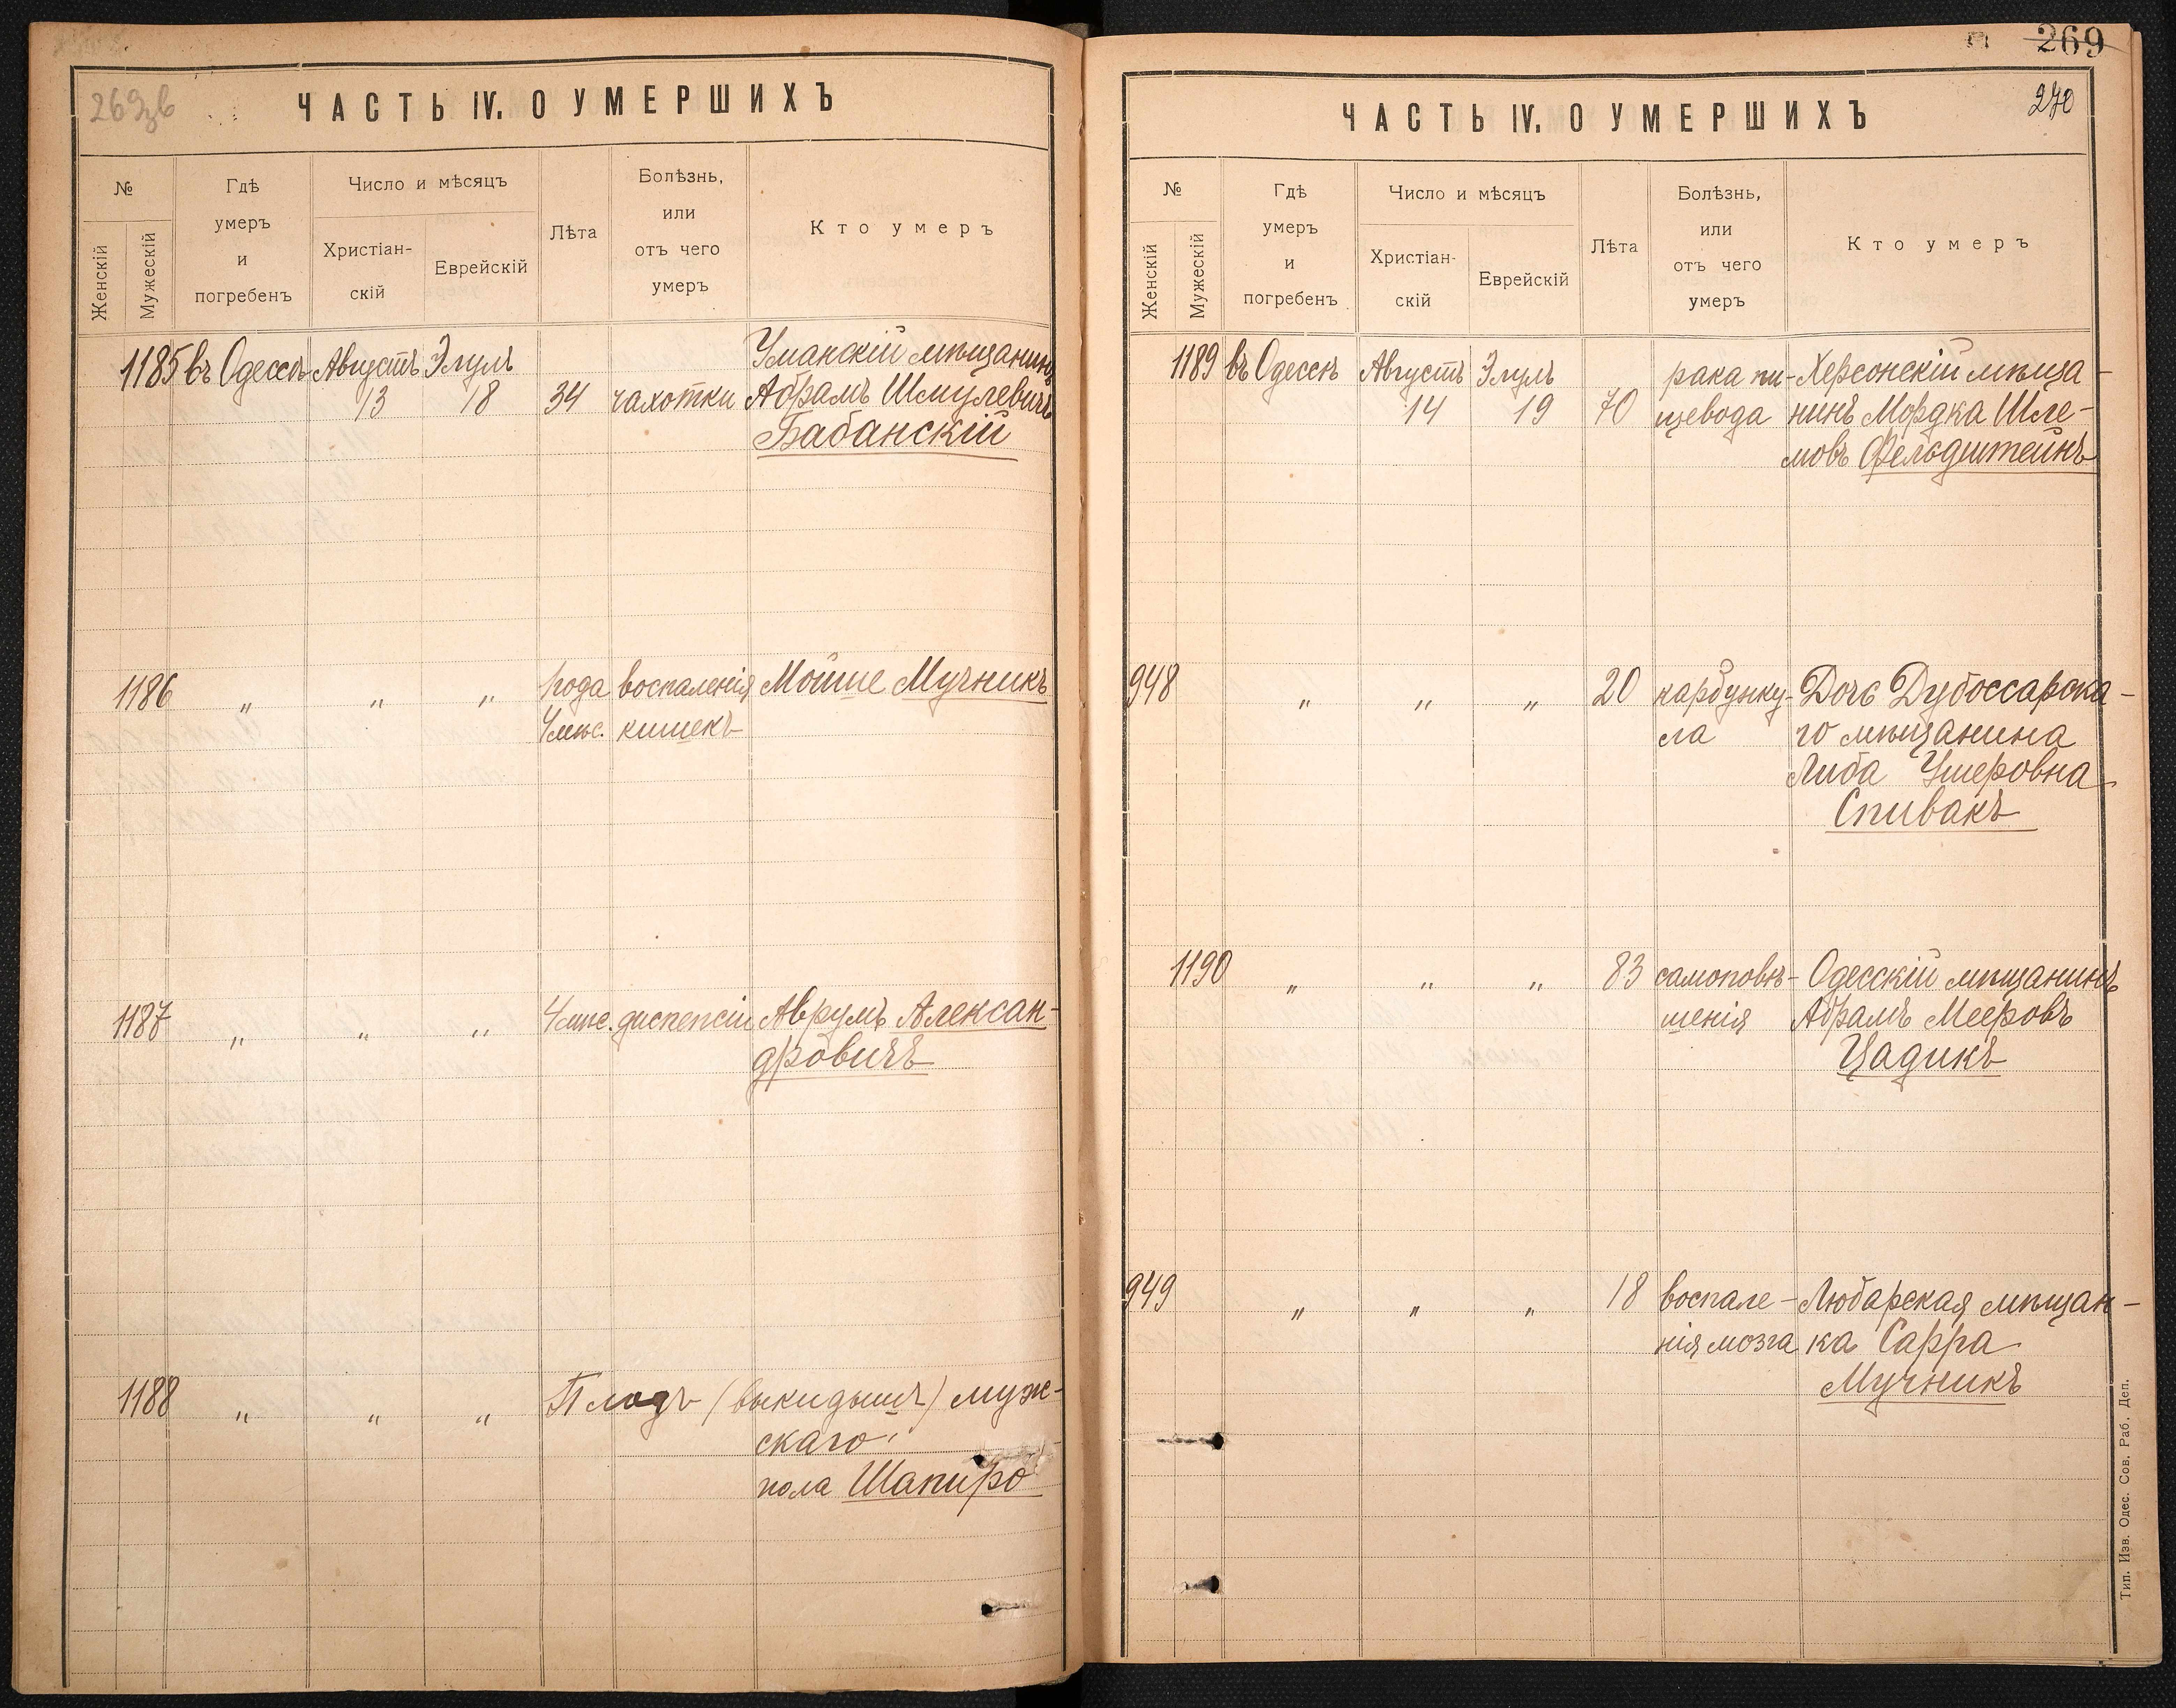 263зв
ЧАСТЬ IV. О УМЕРШИХЪ
№
Женскій
Мужескій
Гдѣ
умеръ
и
погребенъ
Число и мѣсяцъ
Христіан-
скій
Еврейскій
Лѣта
Болѣзнь,
или
отъ чего
умеръ
Кто умеръ
1185 въ Одессѣ Августъ Элулъ Уманскій мѣщанинъ
13 18 34 чахотки Абрамъ Шмулевичъ
Бабанскій
1186 " " " 1 года воспаленія Мойше Мучникъ
4 мѣс. кишекъ
1187 " " " 4 мѣс. диспепсіи Аврумъ Алексан-
дровичъ
1188 " " " Плодъ (выкидышъ) муж-
скаго
пола Шапиро
269
270
ЧАСТЬ IV. О УМЕРШИХЪ
№
Женскій
Мужескій
Гдѣ
умеръ
и
погребенъ
Число и мѣсяцъ
Христіан-
скій
Еврейскій
Лѣта
Болѣзнь,
или
отъ чего
умеръ
Кто умеръ
1189 въ Одессѣ Августъ Элулъ рака пи- Херсонскій мѣща-
14 19 70 щевода нинъ Мордка Шле-
мовъ Фельдштейнъ
948 " " " 20 карбунку- Дочь Дубоссарска-
ла го мѣщанина
Либа Ушеровна
Спивакъ
1190 " " " 83 самоповѣ- Одесскій мѣщанинъ
шенія Абрамъ Мееровъ
Цадикъ
949 " " " 18 воспале- Любарская мѣщан-
нія мозга ка Сарра
Мучникъ
Тип. Изв. Одес. Сов. Раб. Деп.